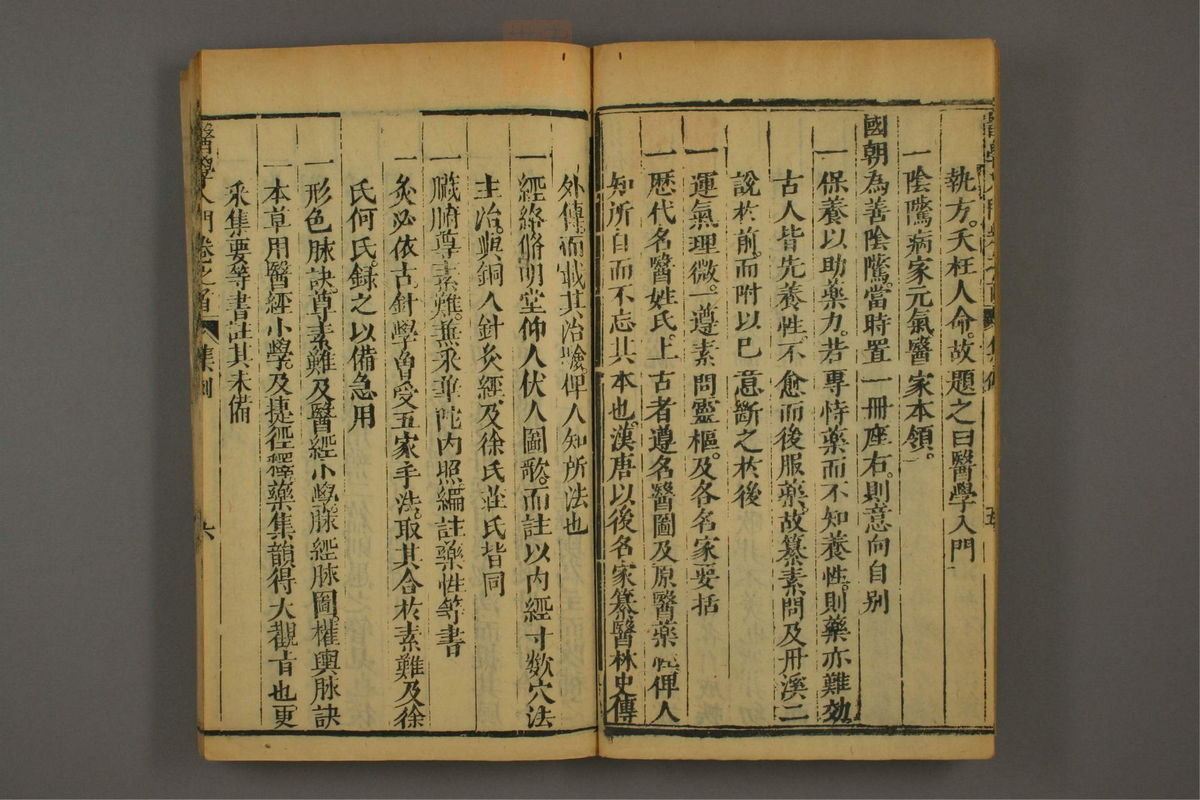 執方。夭枉人命。故題之曰醫學入門
一陰隲病家元氣醫家本領。
國朝為善陰隲。當時置一冊座右。則意向自别
一保養以助藥力。若專恃藥而不知養性。則藥亦難効
古人皆先養性。不愈而後服藥。故纂素問及丹溪二
說於前。而附以己意斷之於後
一運氣理微。一遵素問靈樞。及各名家要括
一歷代名醫姓氏。上古者遵名醫圖及原醫藥性俾人
知所自而不忘其本也。漢唐以後名家纂醫林史傳
外傳。而載其治驗俾人知所法也
一經絡俻明堂仲人伏人圖歌。而註以内經寸数穴法
主治。與銅人針灸經及徐氏莊氏皆同
一臓腑尊素難。兼采華陀内照。編註藥性等書
一灸必依古。針學曽受五家手法。取其合於素難及徐
氏何氏。録之以備急用
一形色脉訣尊素難及醫經小學。脉經脉圖。權輿脉訣
一本草用醫經小學。及捷徑。釋藥集韻得大觀旨也。更
采集要等書註其未備
醫學入門卷之首 集例 六